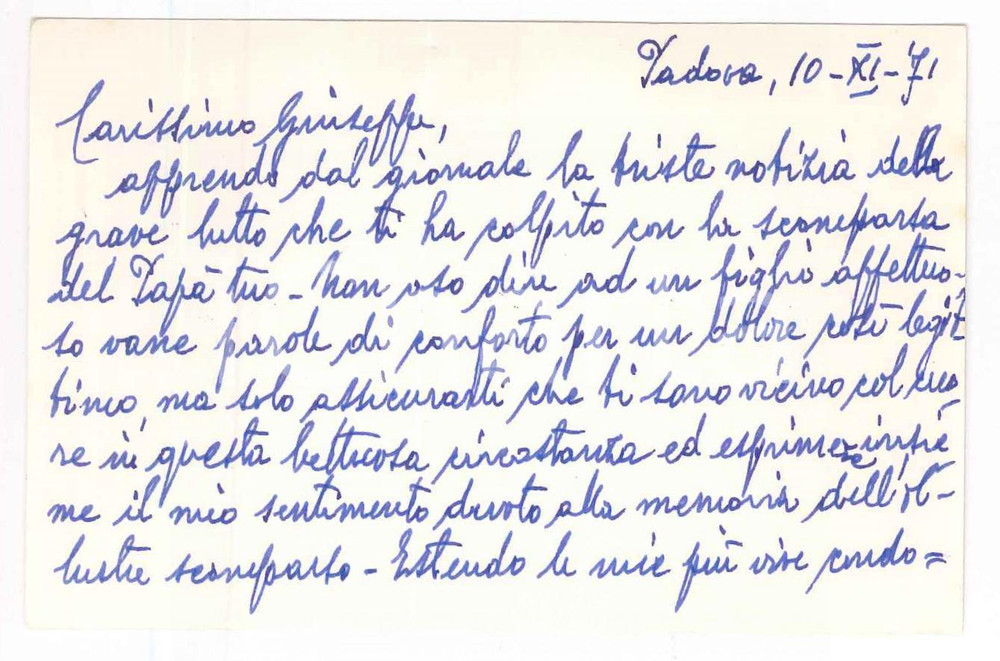 Padova, 10-XI-71
Carissimo Giuseppe,
apprendo dal giornale la triste notizia della
grave lutto che ti ha colpito con la scomparsa
del Papà tuo - Non oso dire ad un figlio affettuo-
so vane parole di conforto per un dolore così legit
timo, ma solo assicurarti che ti sono vicino col cuo
re in questa luttuosa circostanza ed esprimere insie
me il mio sentimento devoto alla memoria dell'il-
lustre scomparso - Estendo le mie più vive condo=